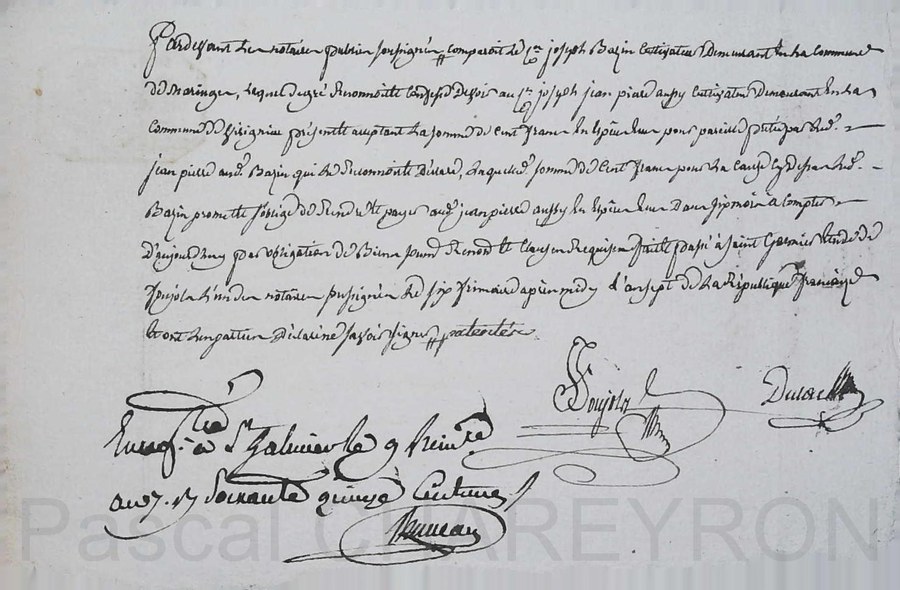 Pardevant les notaires publics soussignés comparoit le Cen joseph Bazin Cultivateur Demeurant En la Commune
de maringes, lequel de gré Reconnoit Confesse Devoir au Cen joseph jean pierre aussy Cultivateur Demeurant En la
Commune de présent acceptant la somme de Cent francs En Espèces pour pareille prêtée par led.
jean pierre aud. Bazin qui le Reconnoit Déclare, laquelle d. somme de Cent francs pour la Cause Cy Dessus led.
Bazin promet s'oblige de Rendre et payer aud. jean pierre aussy En Espèces Dans six mois à Compter
D'aujourdhuy par obligation de Biens Renond et Clauses Requises fait passé à Saint Galmier Etude de
Poujola l'un des notaires soussignés le six frimaire après midy l'an sept de la République française
Et ont les parties Déclaré savoir signer
Poujola
Dulac
Enreg.tré à St Galmier le 9 frimre
an 7. Soixante quinze Centimes
Pascal CHAREYRON